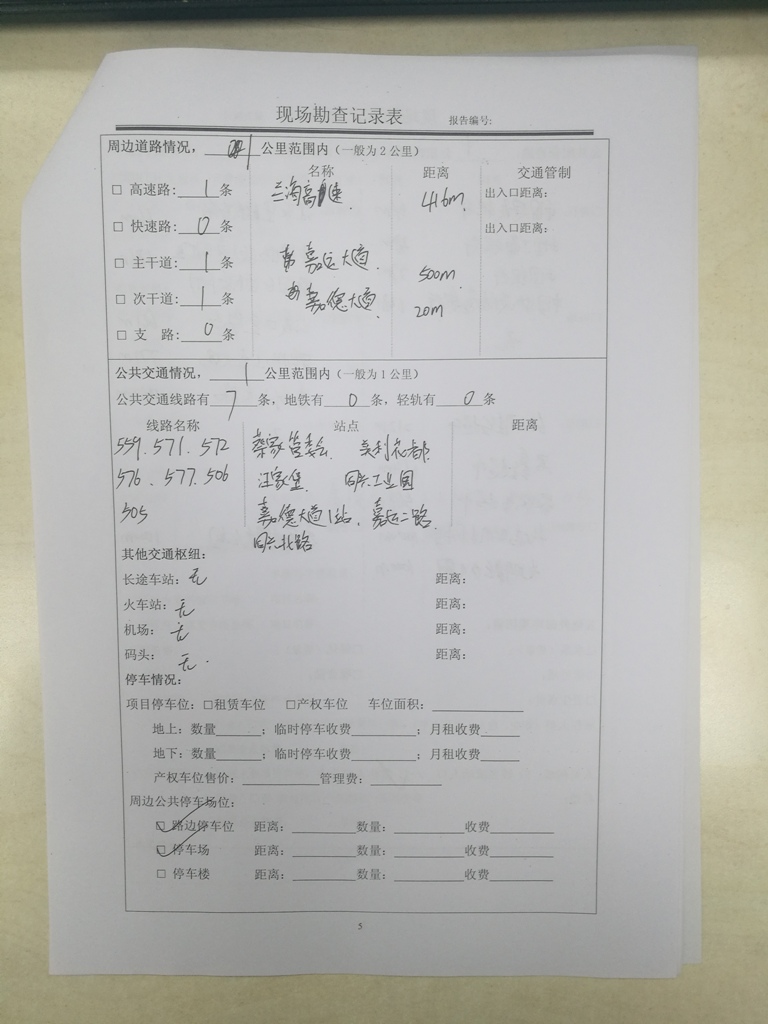 现场勘查记录表 报告编号:
周边道路情况，1公里范围内（一般为2公里）
名称 距离 交通管制
□ 高速路: 1 条 兰海高速 416m 出入口距离:
□ 快速路: 0 条 出入口距离:
□ 主干道: 1 条 嘉运大道 500m
□ 次干道: 1 条 嘉德大道 20m
□ 支 路: 0 条
公共交通情况，1公里范围内（一般为1公里）
公共交通线路有 7 条，地铁有 0 条，轻轨有 0 条
线路名称 站点 距离
559.571.572 蔡家管委会 美利花都
576.577.506 汪家堡 同兴工业园
505 嘉德大道1站、嘉运二路
同兴北路
其他交通枢纽:
长途车站: 无 距离:
火车站: 无 距离:
机场: 无 距离:
码头: 无. 距离:
停车情况:
项目停车位: □租赁车位 □产权车位 车位面积:
地上: 数量______; 临时停车收费______; 月租收费______
地下: 数量______; 临时停车收费______; 月租收费______
产权车位售价: ______管理费: ______
周边公共停车场位:
☑ 路边停车位 距离: ______数量: ______收费______
☑ 停车场 距离: ______数量: ______收费______
□ 停车楼 距离: ______数量: ______收费______
5